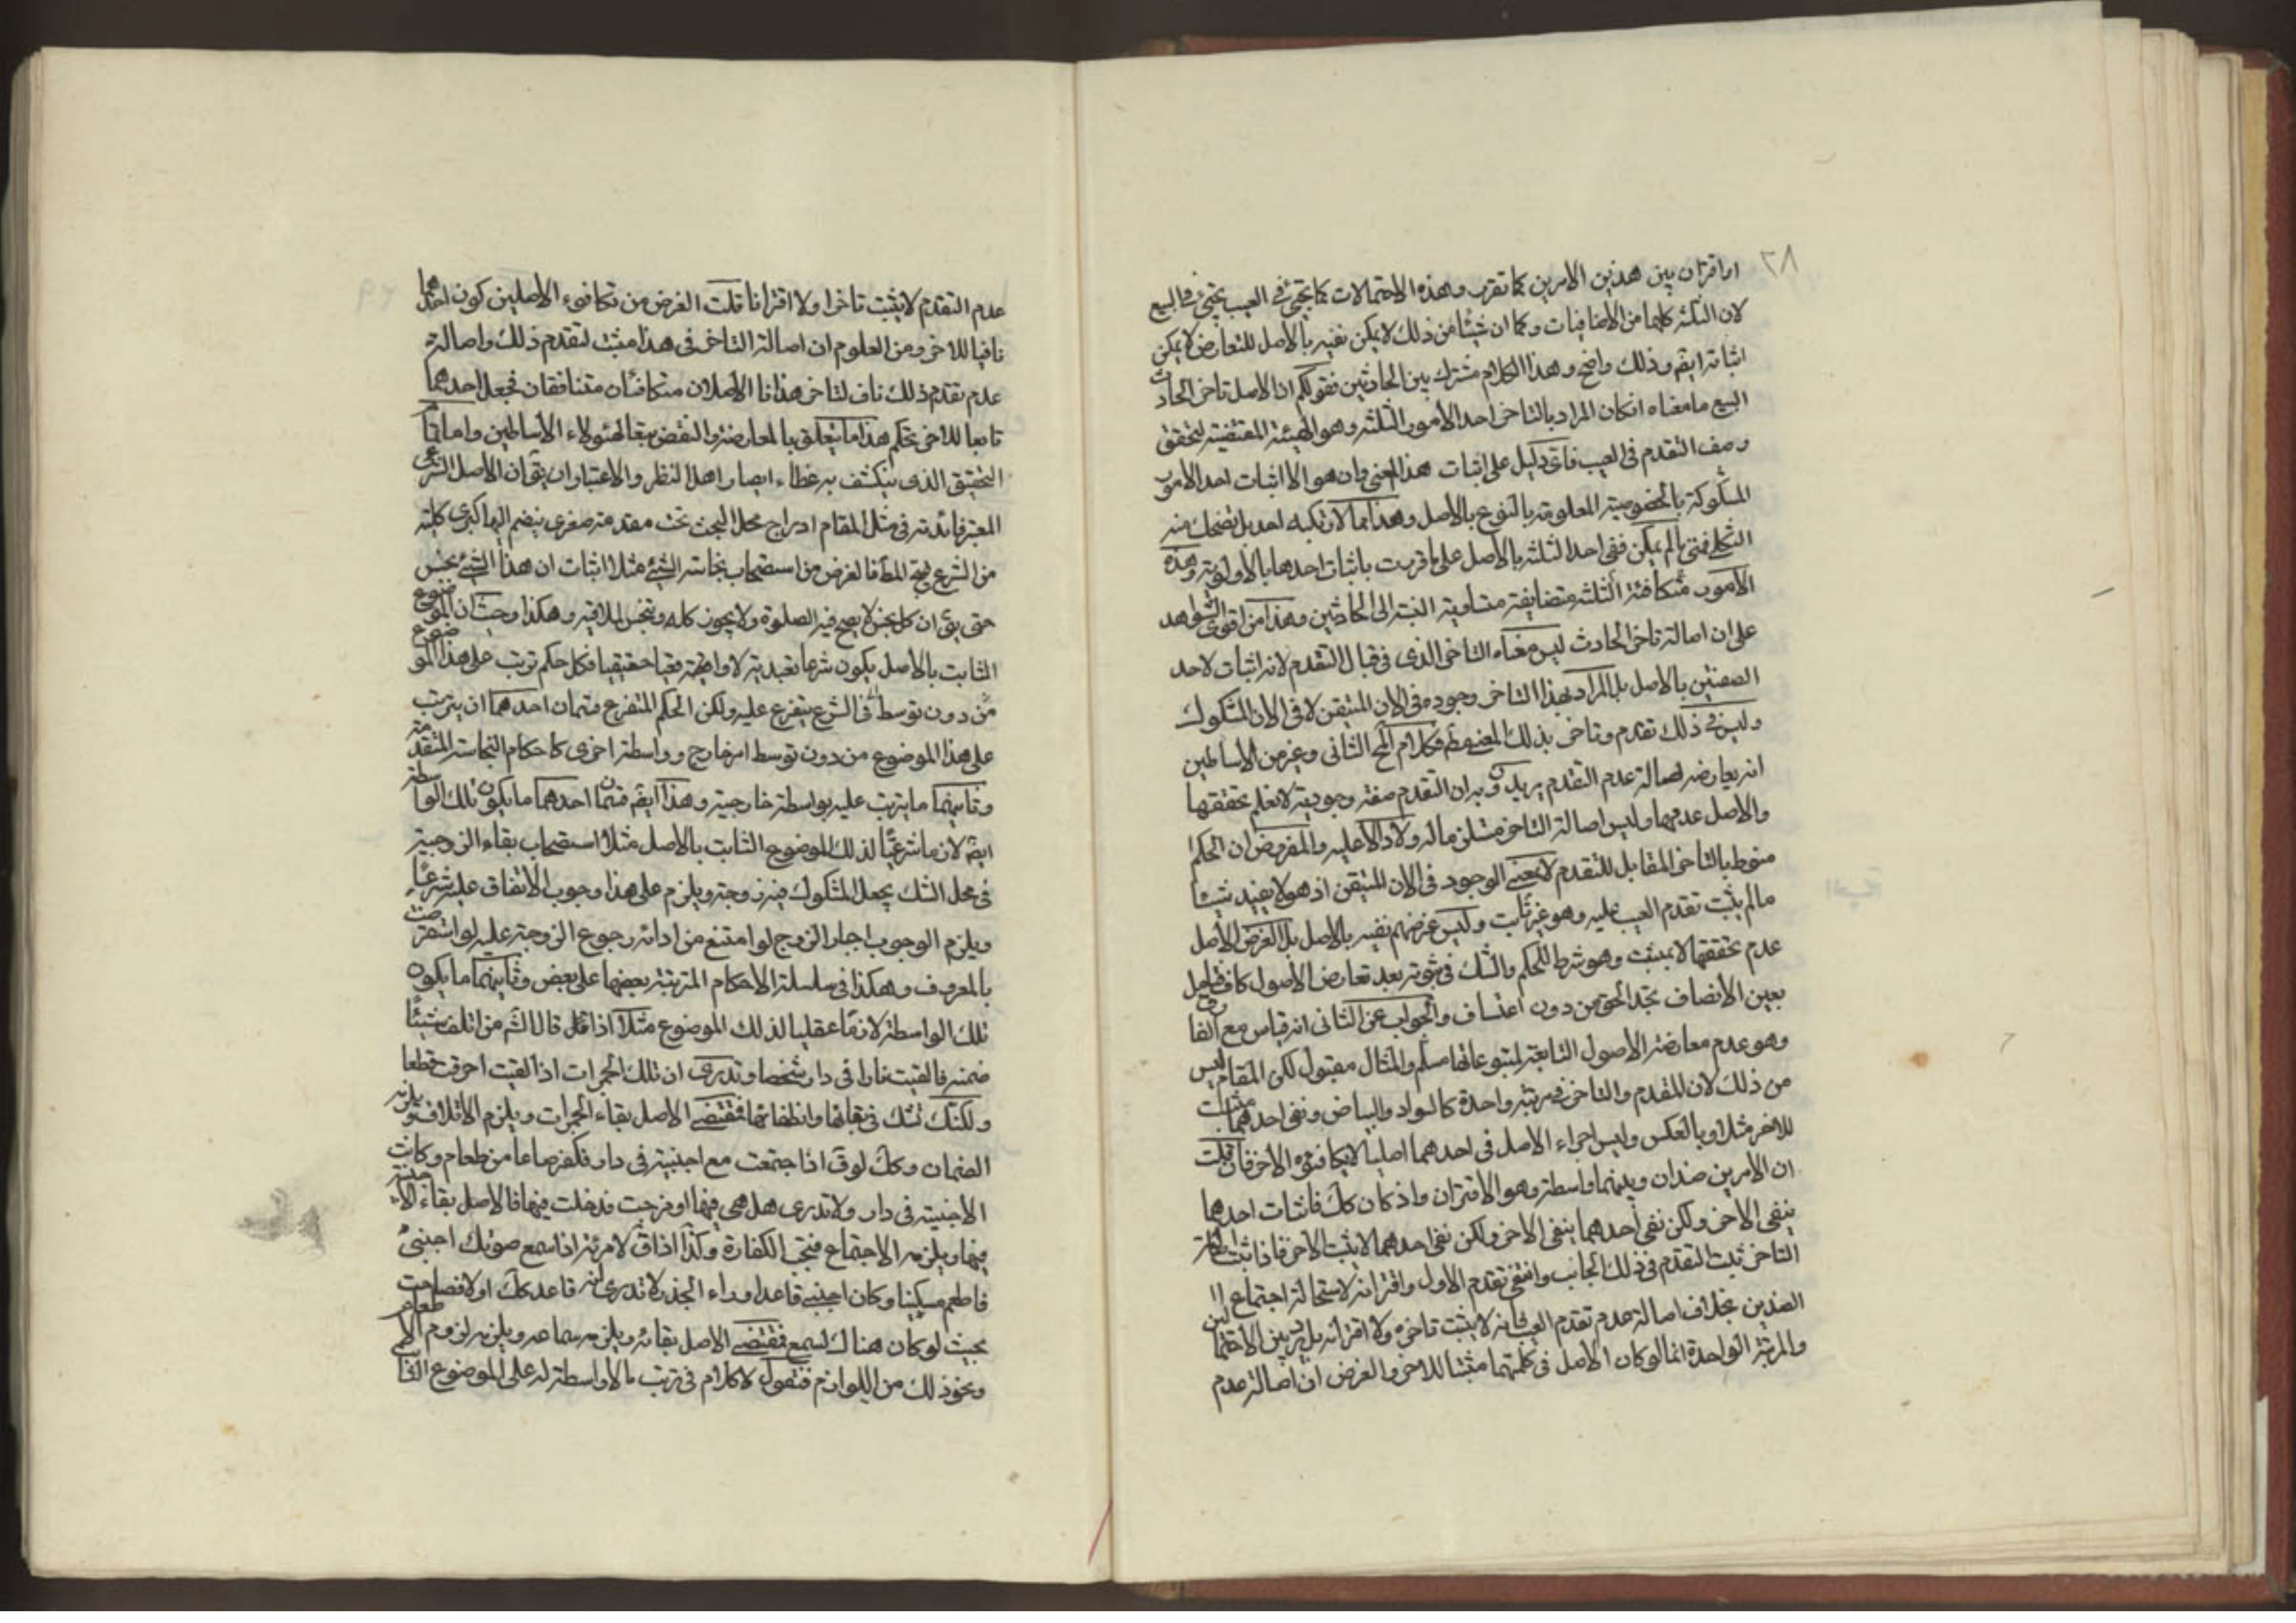 ٢٨
او اقتران بين هذين الامرين كما تقرب وهذه الاحتمالات كما تجئ فى العيب تجئ فى البيع
لان الثلثة كلها من الاضافيات وكما ان شيئا من ذلك لا يمكن نفيه بالاصل للتعارض لا يمكن
اثباته ايضا وذلك واضح وهذا الكلام مشترك بين الحادثين فقولكم ان الاصل تاخر الحادث
البيع ما معناه ان كان المراد بالتاخر احد الأمور الثلثه وهو الهيئة المقتضية لتحقق
وصف التقدم فى العيب فاى دليل على اثبات هذا المعنى وان هو الا اثبات احد الامور
المشكوكة بالخصوصية المعلومة بالنوع بالاصل وهذا مما لا يرتكبه احد بل تضحك منه
الثكلى فمتى لم يمكن نفى احد الثلثه بالاصل على ما قربت باثبات احدها بالأولوية وهذه
الأمور متكافئة الثلثه متضايفة متساوية النسبة الى الحادثين وهذا من اقوى الشواهد
على ان اصالة تاخر الحادث ليس معناه التاخر الذى فى قبال التقدم لانه اثبات لاحد
الصفتين بالاصل بل المراد بهذا التاخر وجوده فى الان المتيقن لا فى الان المشكوك
وليس فى ذلك تقدم وتاخر بذلك المعنى وكلام المح الثانى وغيره من الاساطين
انه يعارضه اصالة عدم التقدم يريدون به ان التقدم صفة وجودية لا نعلم تحققها
والاصل عدمها وليس اصالة التاخر مستلزما له ولا دالا عليه والمفروض ان الحكم
منوط بالتاخر المقابل للتقدم لا بمعنى الوجود فى الان المتيقن اذ هو لا يفيد شيئا
ما لم يثبت تقدم العيب عليه وهو غير ثابت وليس غرضهم نفيه بالاصل بل الغرض الاصل
عدم تحققها لا بمثبت وهو شرط للحكم والشك فى ثبوته بعد تعارض الاصول كاف فتامل
بعين الانصاف تجد الحق من دون اعتساف والجواب عن الثانى انه قياس مع الفارق
وهو عدم معارضة الاصول التابعة لمتبوعاتها مسلم والمثال مقبول لكن المقام ليس
من ذلك لان المقدم والتاخر فى مرتبة واحدة كالسواد والبياض ونفى احدهما مثبت
للاخر مثلا وبالعكس وليس اجراء الاصل فى احدهما اصليا لا يكافئه الاخر فان قلت
ان الامرين ضدان وبينهما واسطة وهو الاقتران واذ كان كك فاثبات احدهما
ينفى الاخر ولكن نفى احدهما ينفى الاخر ولكن نفى احدهما لا يثبت الاخر فاذا ثبت اصالة
التاخر ثبت التقدم فى ذلك الجانب وانتفى تقدم الاول واقترانه لاستحالة اجتماع
الضدين بخلاف اصالة عدم تقدم العيب فانه لا يثبت تاخره ولا اقترانه بل يردد بين الاحتمالين
والمرتبة الواحدة انما لو كان الاصل فى كلتيهما مثبتا للاخر والغرض ان اصالة عدم
٢٩
عدم التقدم لا يثبت تاخرا ولا اقترانا قلت الغرض من تكافوء الاصلين كون احدهما
نافيا للاخر ومن المعلوم ان اصالة التاخر فى هذا مثبت لتقدم ذلك واصالة
عدم تقدم ذلك ناف لتاخر هذا فالأصلان متكافئان متنافقان فجعل احدهما
تابعا للاخر تحكم هذا ما يتعلق بالمعارضة والنقض تبعا لهئولاء الأساطين واما
التحقيق الذى ينكشف به غطاء ابصار اهل النظر والاعتبار ان يقال ان الاصل الشرعى
المعتبر فائدته فى مثل المقام ادراج محل البحث تحت مقدمة صغرى ينضم اليها كبرى كلية
من الشرع ينتج المط فالغرض من استصحاب نجاسة الشئ مثلا اثبات ان هذا الشئ نجس
حتى يقال ان كل نجس لا يصح فيه الصلوة ولا يجوز كله وتنجس الملاقيه وهكذا وحيث ان الموضوع
الثابت بالاصل يكون شرعيا تعبديا لا واقعيا حقيقيا فكل حكم ترتب على هذا الموضوع
من دون توسط فى الشرع يتفرع عليه ولكن الحكم المتفرع قسمان احدهما ان يترتب
على هذا الموضوع من دون توسط امر خارج وواسطة اخرى كاحكام النجاسة المتقدمة
وثانيهما ما يترتب عليه بواسطة خارجية وهذا ايضا قسمان احدهما ما يكون تلك الواسطة
ايضا لازما شرعيا لذلك الموضوع الثابت بالاصل مثلا استصحاب بقاء الزوجية
فى محل الشك يجعل المشكوك فيه زوجة ويلزم على هذا وجوب الانفاق عليه شرعا
ويلزم الوجوب اجبار الزوج لو امتنع من ادائه رجوع الزوجة عليه لو استقرضت
بالمعروف وهكذا فى سلسلة الاحكام المترتبة بعضها على بعض وثانيهما ما يكون
تلك الواسطة لازما عقليا لذلك الموضوع مثلا اذا قال الش من اتلف شيئا
ضمنه فالقيت نارا فى دار شخص وتدرى ان تلك الجمرات اذا القيت احرقت قطعا
ولكنك تشك فى بقائها وانطفائها فمقتضى الاصل بقاء الجمرات ويلزم الاتلاف ويلزمه
الضمان وكك لو ق اذا جتمعت مع اجنبية فى دار فكفر صاعا من طعام وكانت
الاجنبية فى دار ولا تدرى هل هى فيها او خرجت فدخلت فيها فالاصل بقاء الاجنبية
فيها ويلزمه الاجتماع فتجب الكفارة وكذا اذا ق لامرئة اذا سمع صوتك اجنبى
فاطعم مسكينا وكان اجنبى قاعدا وراء الجدر لا تدرى انه قاعد كك او لا فصاحت
بحيث لو كان هناك لسمع فمقتضى الاصل بقائه ويلزمه سماعه ويلزمه لزوم الاطعام
ونحو ذلك من اللوازم فنقول لا كلام فى ترتب ما لا واسطة له على الموضوع